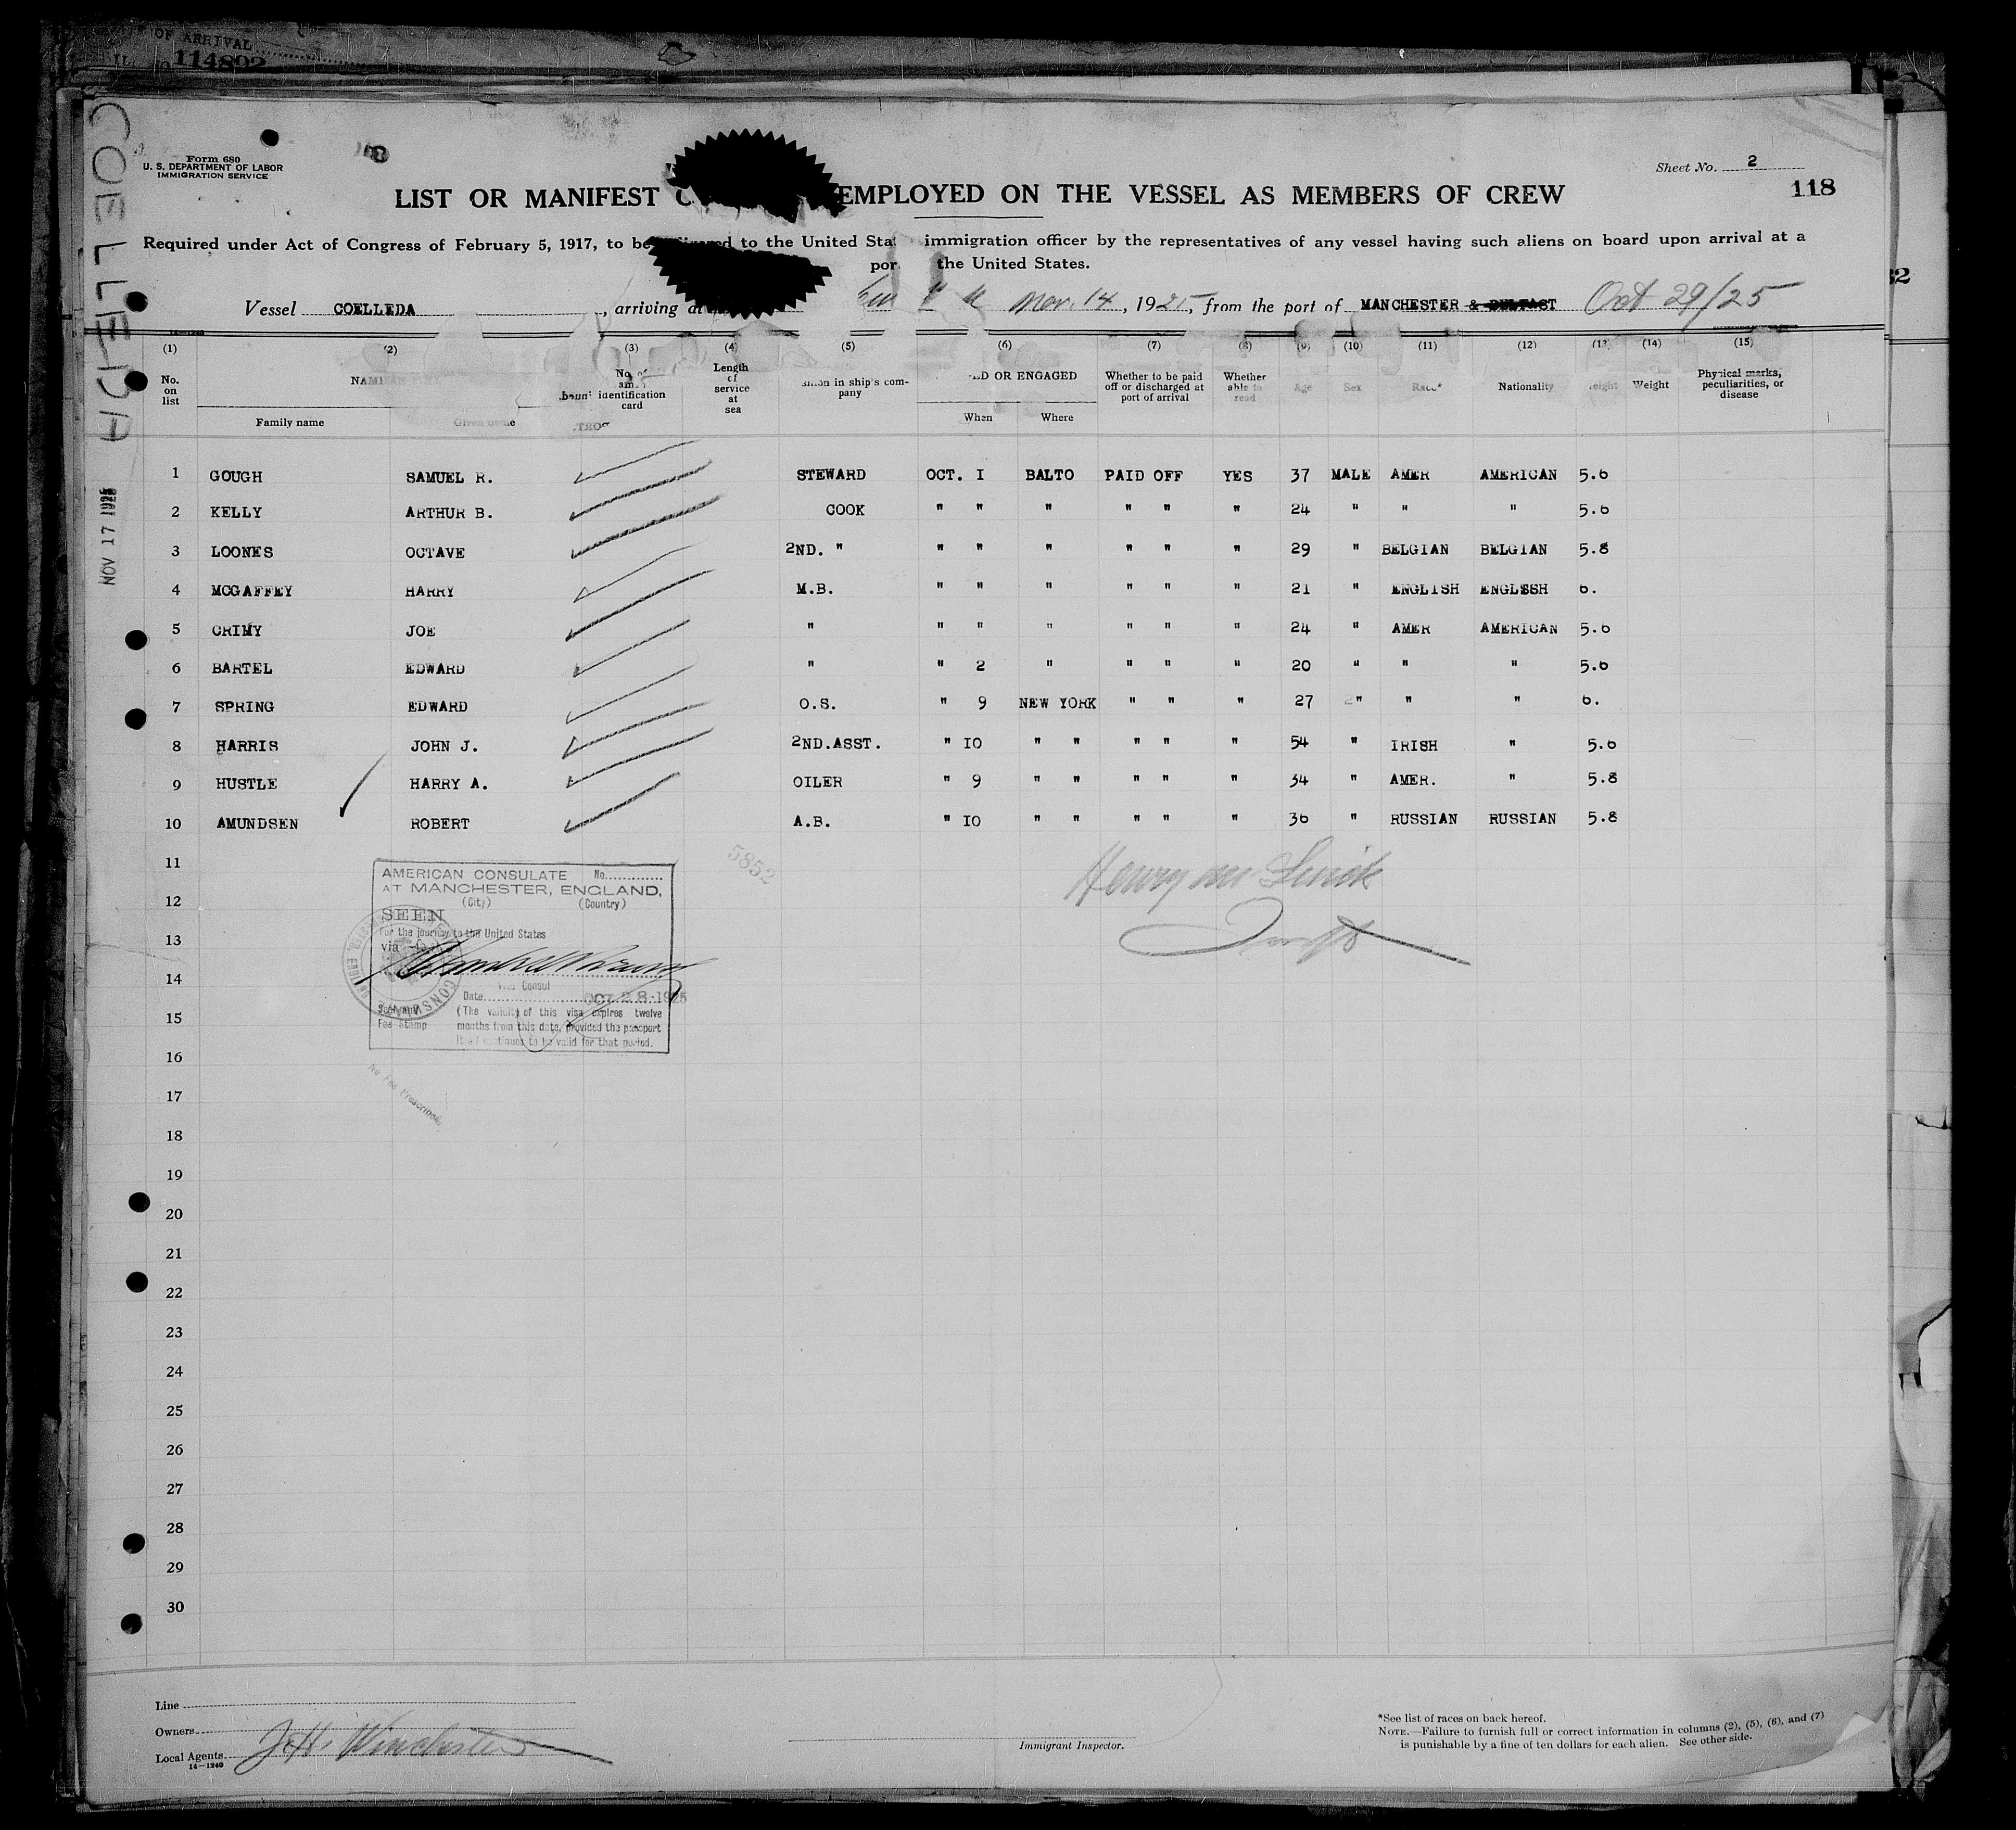 OF ARRIVAL
114892
COELLEDA
NOV 17 1925
Form 680
U. S. DEPARTMENT OF LABOR
IMMIGRATION SERVICE
Sheet No. 2
118
LIST OR MANIFEST EMPLOYED ON THE VESSEL AS MEMBERS OF CREW
Required under Act of Congress of February 5, 1917, to be to the United immigration officer by the representatives of any vessel having such aliens on board upon arrival at a
the United States.
Vessel COELLEDA, arriving at Nov. 14, 1925, from the port of MANCHESTER & BELFAST Oct 29/25
14-1240
(1) (2) (3) (4) (5) (6) (7) (8) (9) (10) (11) (12) (13) (14) (15)
No. on list
Family name
Given name
identification card
Length of service at sea
in ship's company
OR ENGAGED
When
Where
Whether to be paid off or discharged at port of arrival
Whether able to read
Age
Sex
Race*
Nationality
Weight
Physical marks, peculiarities, or disease
1 GOUGH SAMUEL R. STEWARD OCT. I BALTO PAID OFF YES 37 MALE AMER AMERICAN 5.6
2 KELLY ARTHUR B. COOK " " " " " " 24 " " " 5.6
3 LOONES OCTAVE 2ND. " " " " " " " 29 " BELGIAN BELGIAN 5.8
4 MCGAFFEY HARRY M.B. " " " " " " 21 " ENGLISH ENGLSSH 6.
5 CRIMY JOE " " " " " " " 24 " AMER AMERICAN 5.6
6 BARTEL EDWARD " " 2 " " " " 20 " " " 5.6
7 SPRING EDWARD O.S. " 9 NEW YORK " " " 27 " " " 6.
8 HARRIS JOHN J. 2ND.ASST. " IO " " " " " 54 " IRISH " 5.6
9 HUSTLE HARRY A. OILER " 9 " " " " " 34 " AMER. " 5.8
10 AMUNDSEN ROBERT A.B. " IO " " " " " 36 " RUSSIAN RUSSIAN 5.8
11
12
13
14
15
16
17
18
19
20
21
22
23
24
25
26
27
28
29
30
5852
AMERICAN CONSULATE No.
AT MANCHESTER, ENGLAND,
(City) (Country)
SEEN
For the journey to the United States
via
Vice Consul
Date OCT 28 1925
Fee Stamp
(The validity of this visa expires twelve
months from this date, provided the passport
continues to be valid for that period.
No Fee Prescribed.
Line
Owners
Local Agents
14-1240
Immigrant Inspector.
*See list of races on back hereof.
NOTE.—Failure to furnish full or correct information in columns (2), (5), (6), and (7)
is punishable by a fine of ten dollars for each alien. See other side.